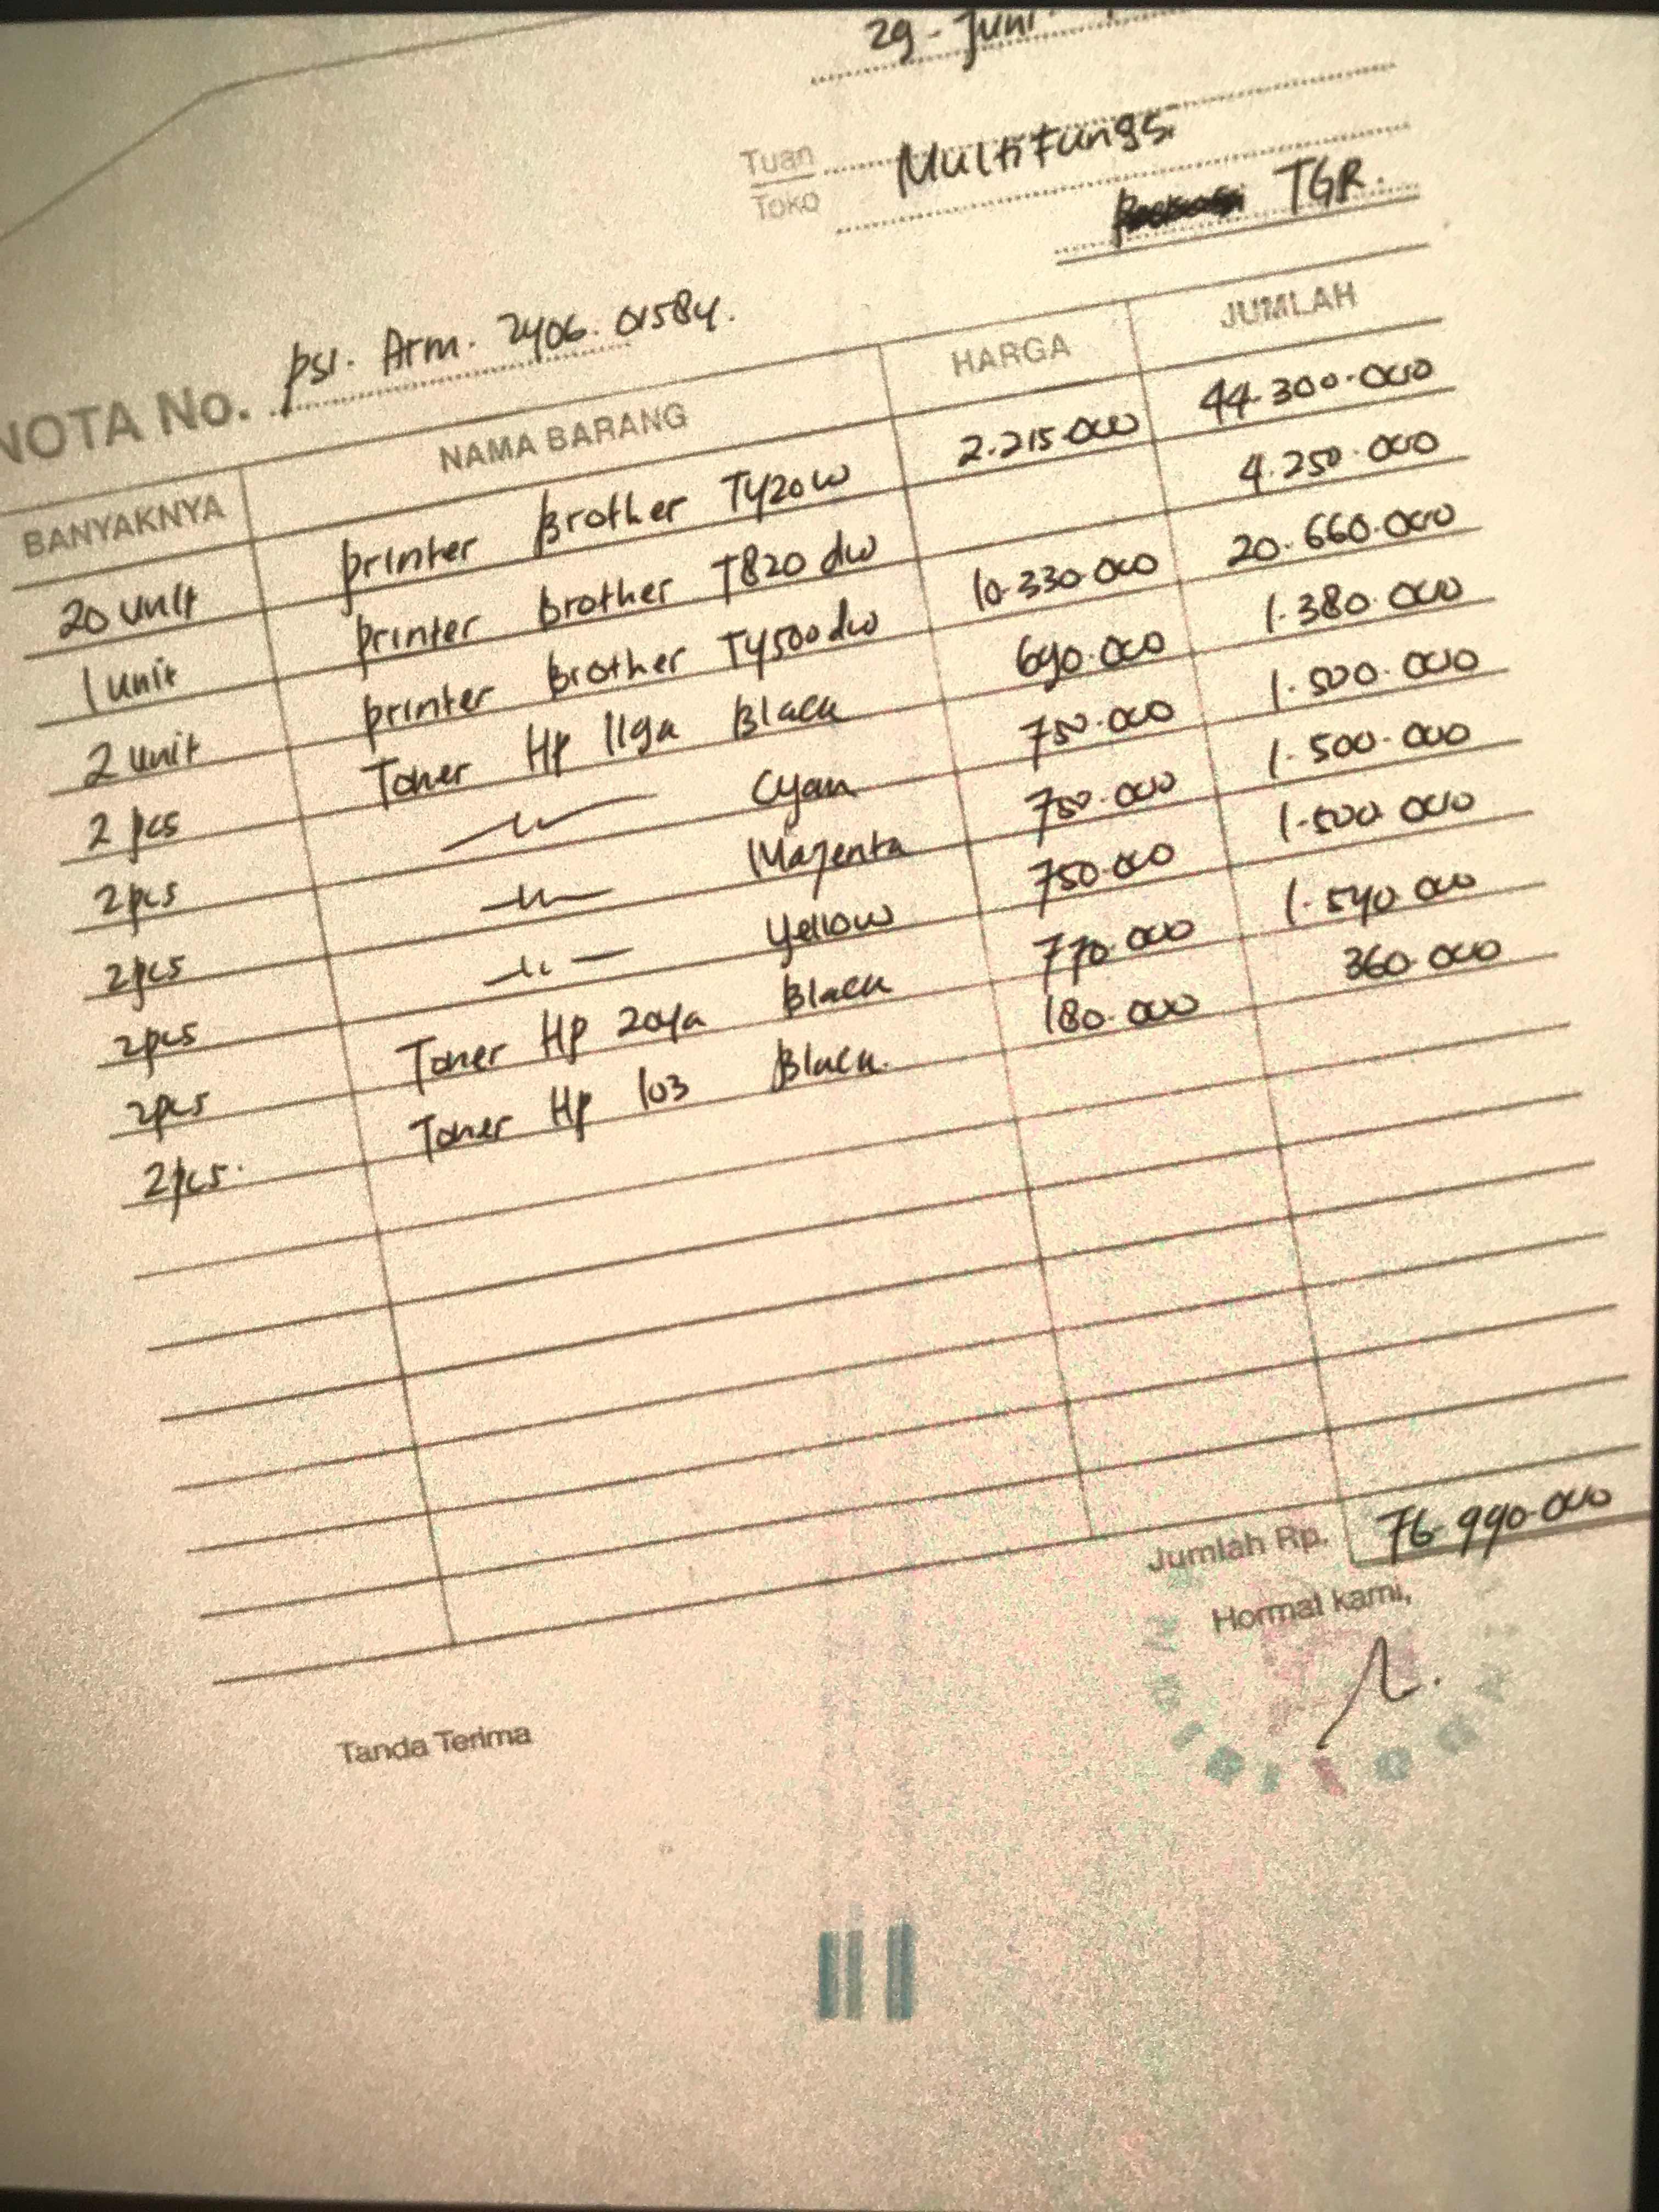 29-Juni
Tuan
Toko
Multifungsi
TGR.
NOTA No. psi. Arm. 2406. 01584.
BANYAKNYA NAMA BARANG HARGA JUMLAH
20 unit printer Brother T420w 2.215.000 44.300.000
1 unit printer Brother T820 dw 4.250.000
2 unit printer Brother T4500dw 10.330.000 20.660.000
2 pcs Toner Hp 119a Black 690.000 1.380.000
2pcs Cyan 750.000 1.500.000
2pcs Magenta 750.000 1.500.000
2pcs Yellow 750.000 1.500.000
2pcs Toner Hp 204a Black 770.000 1.540.000
2pcs. Toner Hp 103 Black. 180.000 360.000
Jumlah Rp. 76.990.000
Hormat kami,
Tanda Terima